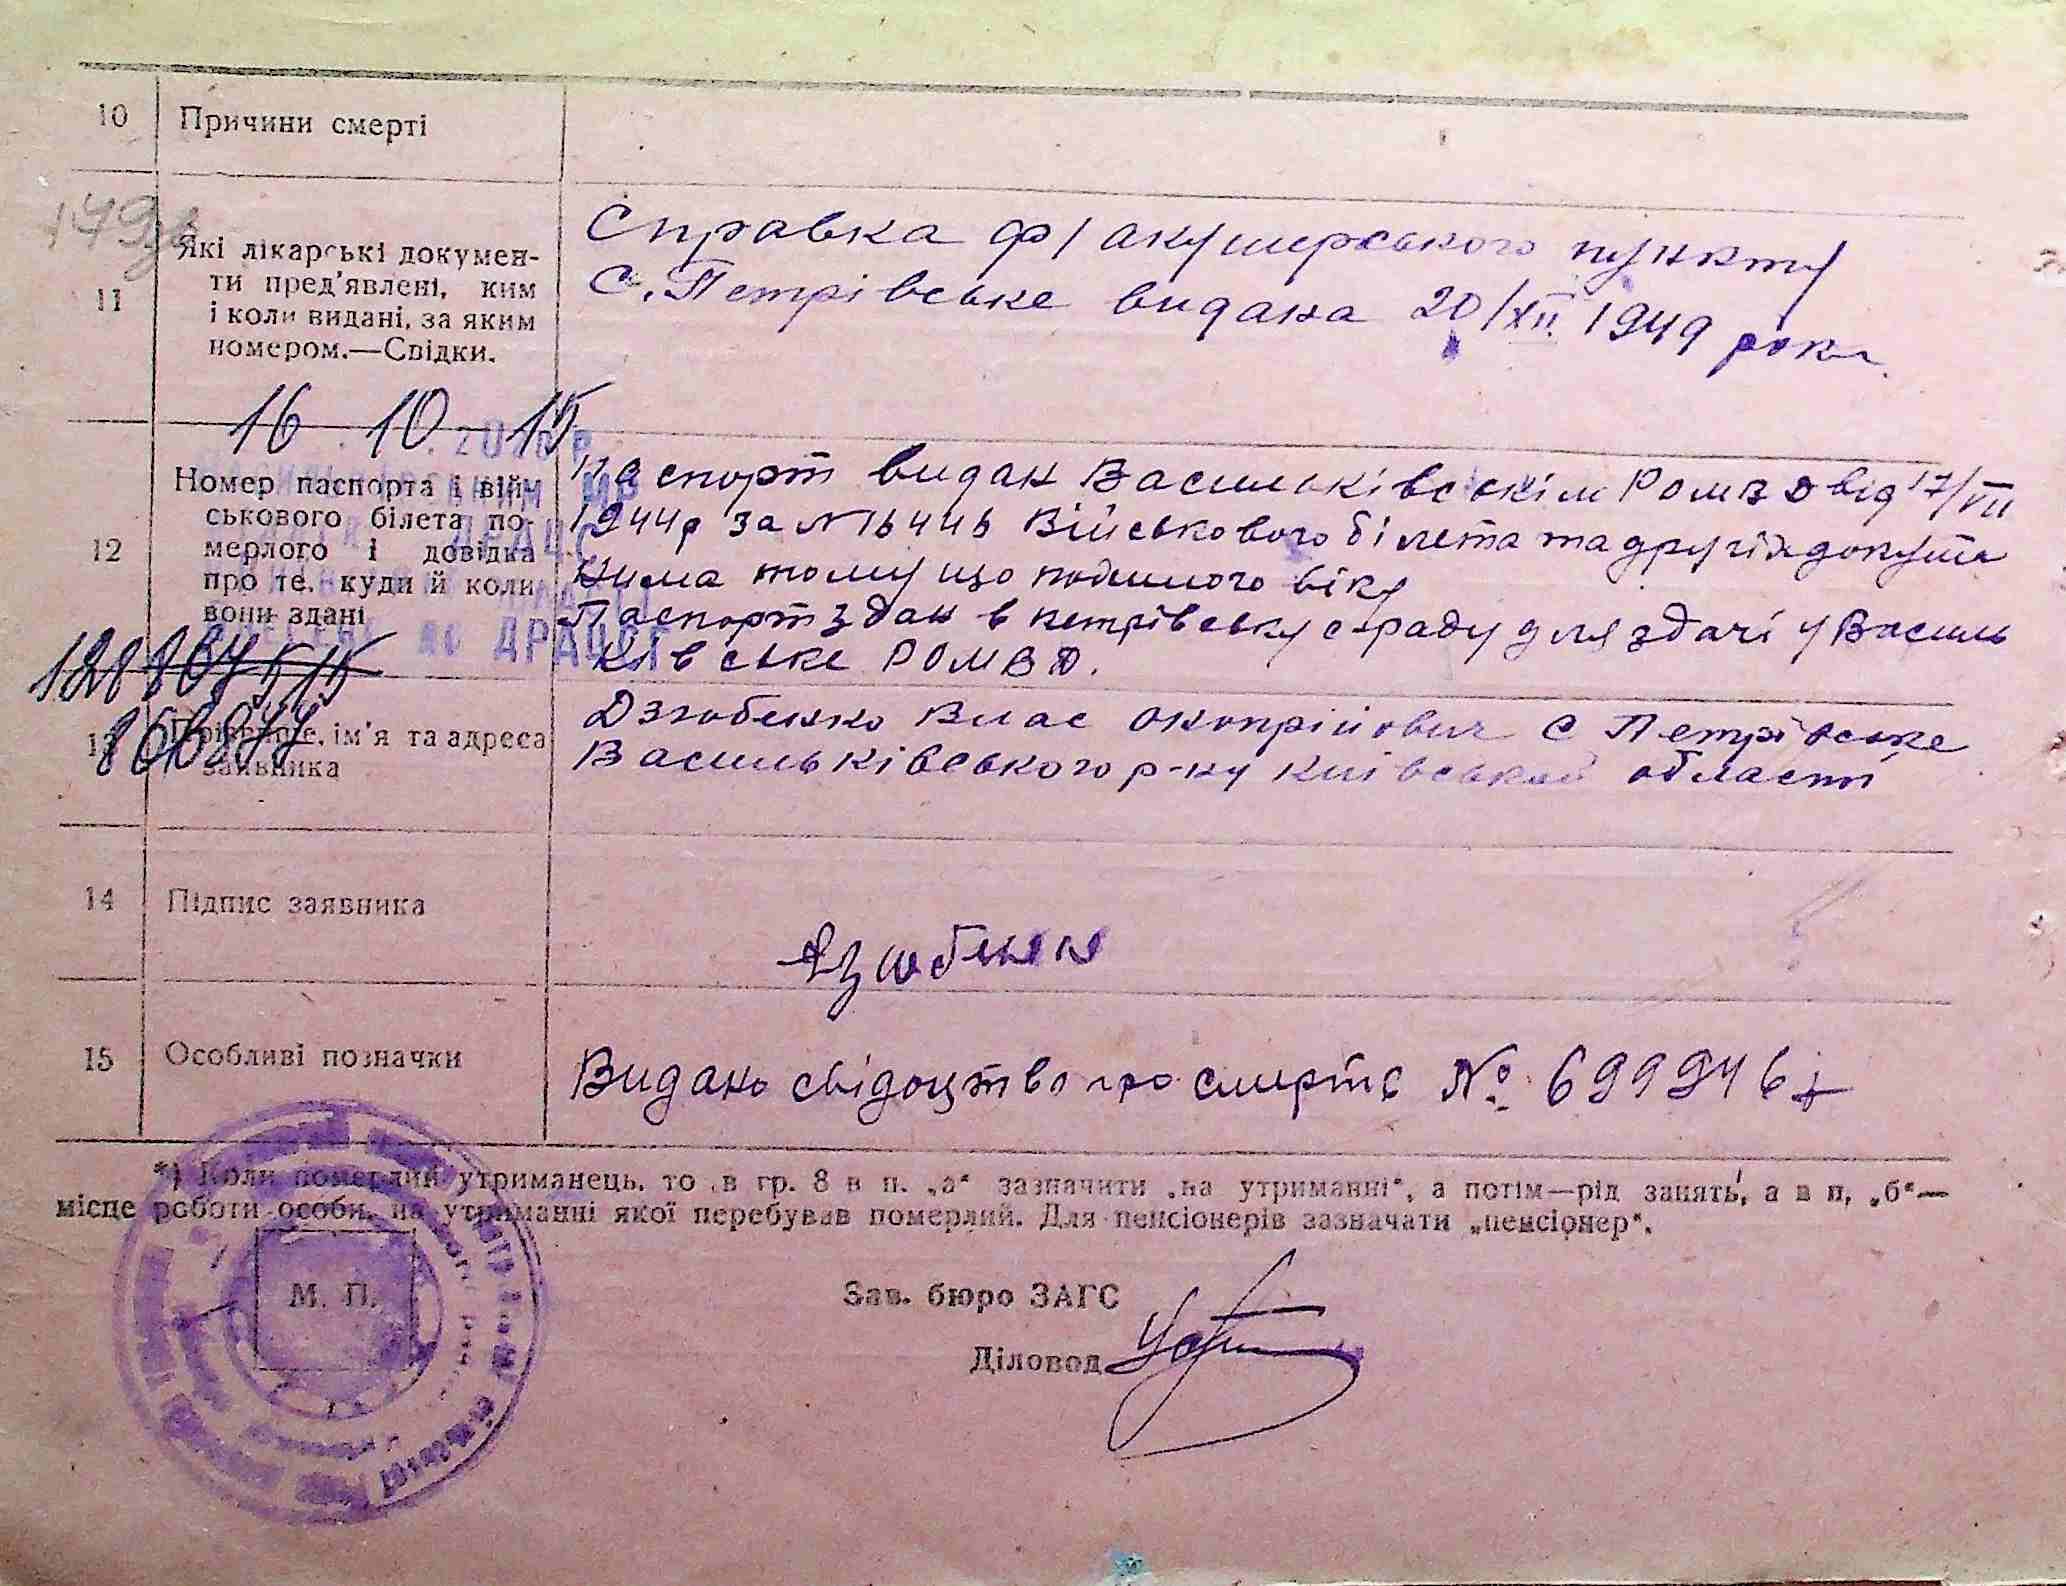 10 Причини смерті
149зв
11 Які лікарські докумен-
ти пред'явлені, ким
і коли видані, за яким
номером.—Свідки.
Справка ф/акушерського пункту
С. Петрівське видана 20/XII 1949 року.
16 10 15
12 Номер паспорта і вій-
ськового білета по-
мерлого і довідка
про те, куди й коли
вони здані
Паспорт видан Васильківськім РОМВД від 17/VII
1944р за № Військового білета та другіх докум
нима тому що похилого віку
Паспорт здан в петрівську с-раду для здачі у Василь
ківське РОМВД.
ДРАЦС
13 ім'я та адреса
заявника
Дзюбенко Влас с Петрівське
Васильківського р-ну Київськой області
14 Підпис заявника
15 Особливі позначки
Видано свідоцтво про смерть №
*) Коли померлий утриманець, то в гр. 8 в п. „а“ зазначити „на утриманні“, а потім—рід занять, а в п. „б“—
місце роботи особи, на утриманні якої перебував померлий. Для пенсіонерів зазначати „пенсіонер“.
М. П.
Зав. бюро ЗАГС
Діловод